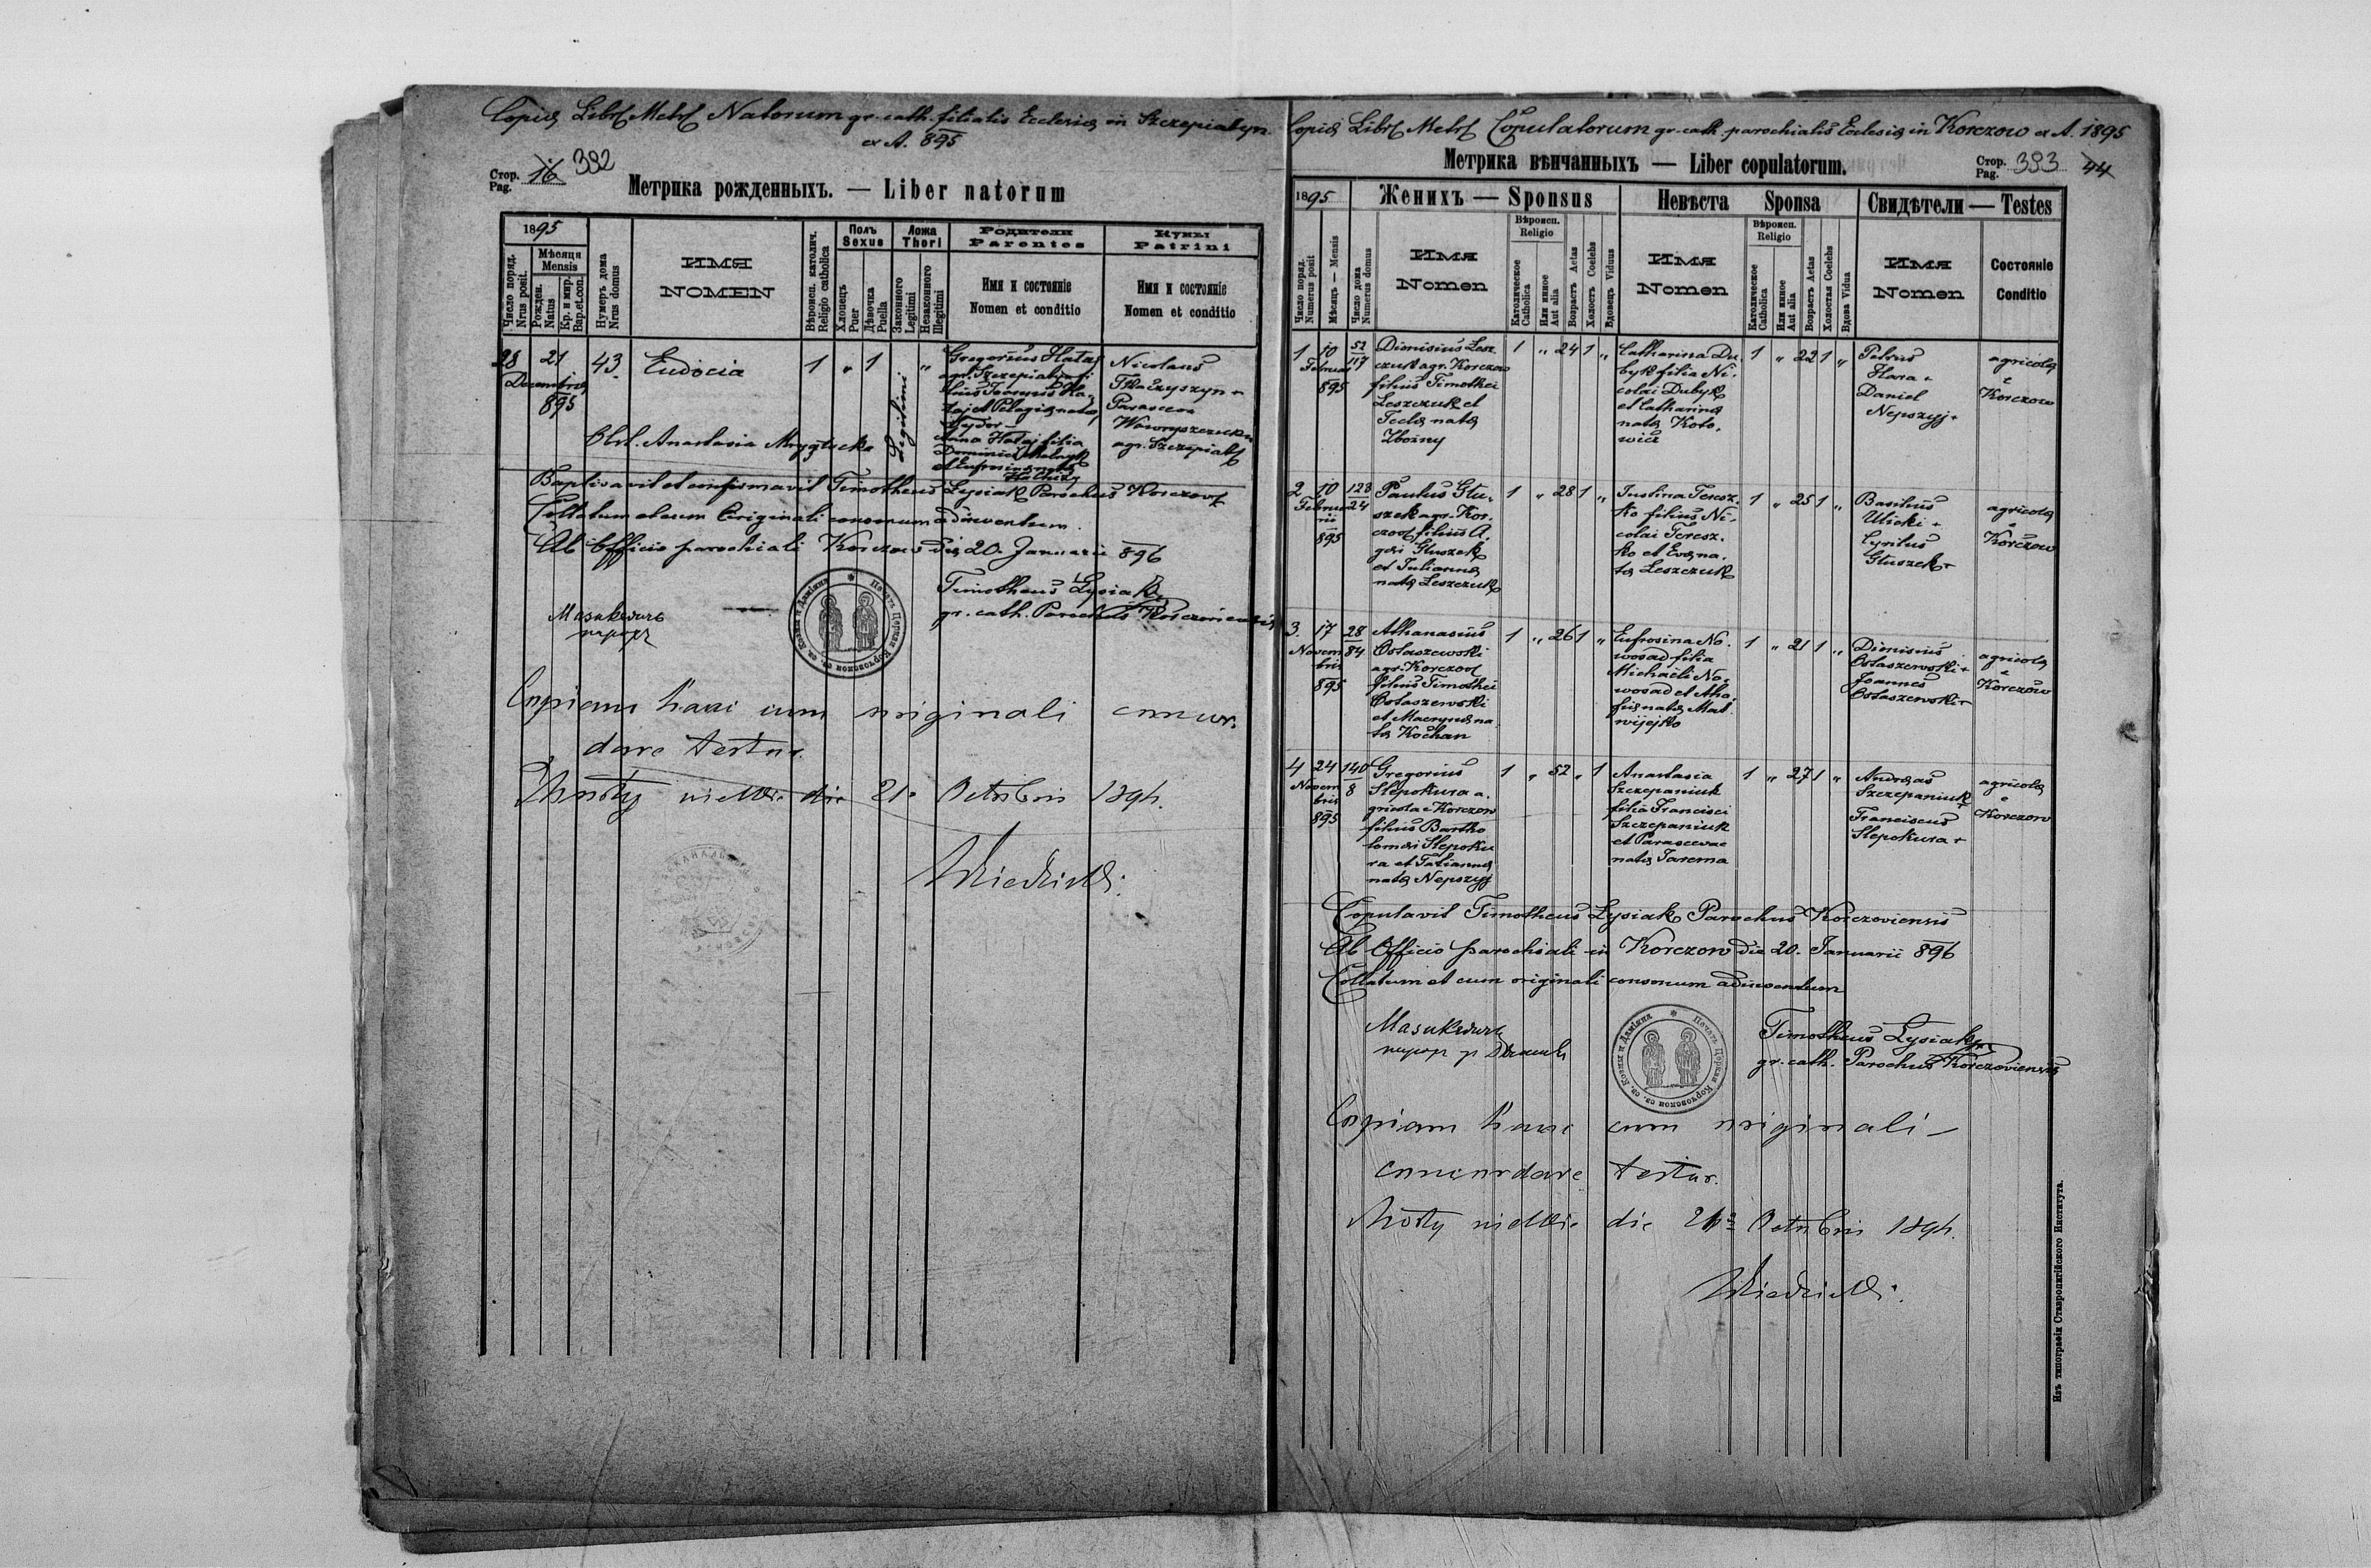 Copia Libri Metr Natorum gr. cath. filialis Ecclesia in Szczepiatyn
ex A. 895
Стор.
Pag.
16 392
Метрика рожденныхъ. — Liber natorum
1895
Число поряд.
Nrus posit.
Мѣсяця
Mensis
Рожден.
Natus
Кр. и мир.
Bap.et.con.
Нумеръ дома
Nrus domus
ИМЯ
NOMEN
Вѣроисп. католич.
Religio catholica
Полъ
Sexus
Хлопецъ
Puer
Дѣвочка
Puella
Ложа
Thori
Законного
Legitimi
Незаконного
Illegitimi
Родители
Parentes
Имя и состояніе
Nomen et conditio
Кумы
Patrini
Имя и состояніе
Nomen et conditio
28 21 43. Eudocia 1 „ 1 Legitimi „
Decembris
895
Gregorius Hataj
filius Joannis Ha-
taj et Pelagia nata
Anna Hataj filia
Dominici Melnyk
et Eufrosina nata
Nicolaus
Tkaczyszyn +
Parasceva
Wawryszczuk
agr. Szczepiat
Obst. Anastasia
Baptisavit et confirmavit Timotheus Łysiak Parochus Korczov
Collatum et cum Originali consonum adinventum.
Ab Officio parochiali Korczow die 20. Januarii 896
Timotheus Łysiak
gr. cath. Parochus Korczoviensis
Печать Церкви Корчовской св. Козмы и Даміяна
Copiam hanc cum originali concor-
dare testor.
Mosty wielkie die 21. Octobris 189
Copia Libri Metr Copulatorum gr. cath. parochialis Ecclesia in Korczow ex A. 1895
Метрика вѣнчанныхъ — Liber copulatorum.
Стор.
Pag.
393 44
1895
Женихъ — Sponsus
Невѣста Sponsa
Свидѣтели — Testes
Число поряд.
Numerus posit
Мѣсяць — Mensis
Число дома
Numerus domus
Имя
Nomen
Вѣроисп.
Religio
Католическое
Catholica
Или иное
Aut alia
Возрастъ Aetas
Холостъ Coelebs
Вдовецъ Viduus
Имя
Nomen
Вѣроисп.
Religio
Католическое
Catholica
Или иное
Aut alia
Возрастъ Aetas
Холостая Coelebs
Вдова Vidua
Имя
Nomen
Состояніе
Conditio
1 10 52 117
Februar
895
Dionisius Lesz-
czuk agr. Korczow
filius Timothei
Leszczuk et
Tecla nata
Zboiny
1 „ 24 1 „
Catharina Du-
byk filia Ni-
colai Dubyk
et Catharina
nata Koto-
wicz
1 „ 22 1 „
Petrus
Hara +
Daniel
Nepszyj +
agricola
e
Korczow
2 10 128 24
Februa
rii
895
Paulus Głu-
szek agr. Kor-
czov filius A-
gei Głuszek
et Julianna
nata Leszczuk
1 „ 28 1 „
Justina Teresz-
ko filius Ni-
colai Teresz-
ko et Eva na-
ta Leszczuk
1 „ 25 1 „
Basilius
Ulicki +
Cyrilus
Głuszek +
agricola
e
Korczow
3. 17 28 84
Novem
bris
895
Athanasius
Ostaszewski
agr. Korczov
filius Timothei
Ostaszewski
et Macryna na
ta Kochan
1 „ 26 1 „
Eufrosina No-
wosad filia
Michaeli No-
wosad et Aha-
fia nata Mat-
wijejko
1 „ 21 1 „
Dionisius
Ostaszewski +
Joannes
Ostaszewski +
agricola
e
Korczow
4 24 140 8
Novem
bris
895
Gregorius
Slepokura a-
gricola e Korczow
filius Bartho
lomei Slepoku
ra et Tatianna
nata Nepszyj
1 „ 52 „ 1
Anastasia
Szczepaniuk
filia Francisci
Szczepaniuk
et Parascevae
nata Jarema
1 „ 27 1 „
Andreas
Szczepaniuk
Franciscus
Slepokura +
agricola
e
Korczow
Copulavit Timotheus Łysiak Parochus Korczoviensis
Ab Officio parochiali in Korczow die 20. Januarii 896
Collatum et cum originali consonum adinventum
Timotheus Łysiak
gr. cath. Parochus Korczoviensis
Печать Церкви Корчовской св. Козмы и Даміяна
Copiam hanc cum originali
concordare testor.
Mosty wielkie die Octobris 189
Изъ типографіи Ставропигійского Института.